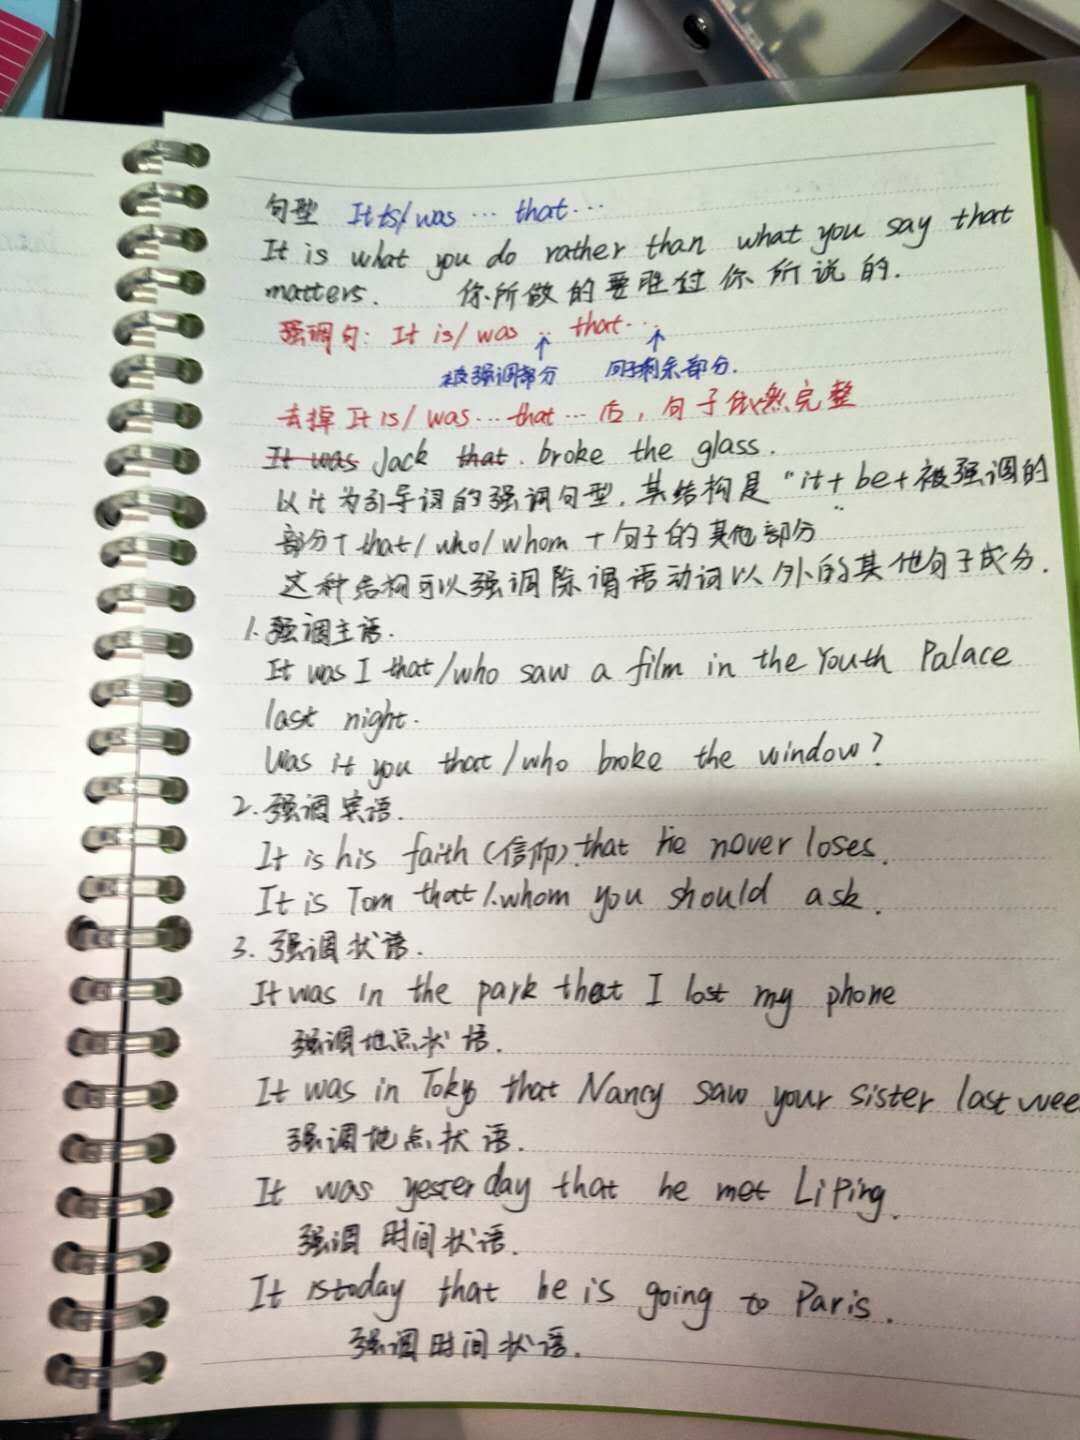 句型 It is/was … that …
It is what you do rather than what you say that
matters. 你所做的要胜过你所说的.
强调句: It is/was … that …
被强调部分 句子剩余部分.
去掉 It is/was … that … 后, 句子依然完整
It was Jack that broke the glass.
以it为引导词的强调句型, 其结构是 "it + be + 被强调的
部分 + that/who/whom + 句子的其他部分"
这种结构可以强调除谓语动词以外的其他句子成分.
1. 强调主语.
It was I that/who saw a film in the Youth Palace
last night.
Was it you that/who broke the window?
2. 强调宾语.
It is his faith (信仰) that he never loses.
It is Tom that/whom you should ask.
3. 强调状语.
It was in the park that I lost my phone
强调地点状语.
It was in Tokyo that Nancy saw your sister last wee
强调地点状语.
It was yesterday that he met Li Ping.
强调时间状语.
It is today that he is going to Paris.
强调时间状语.